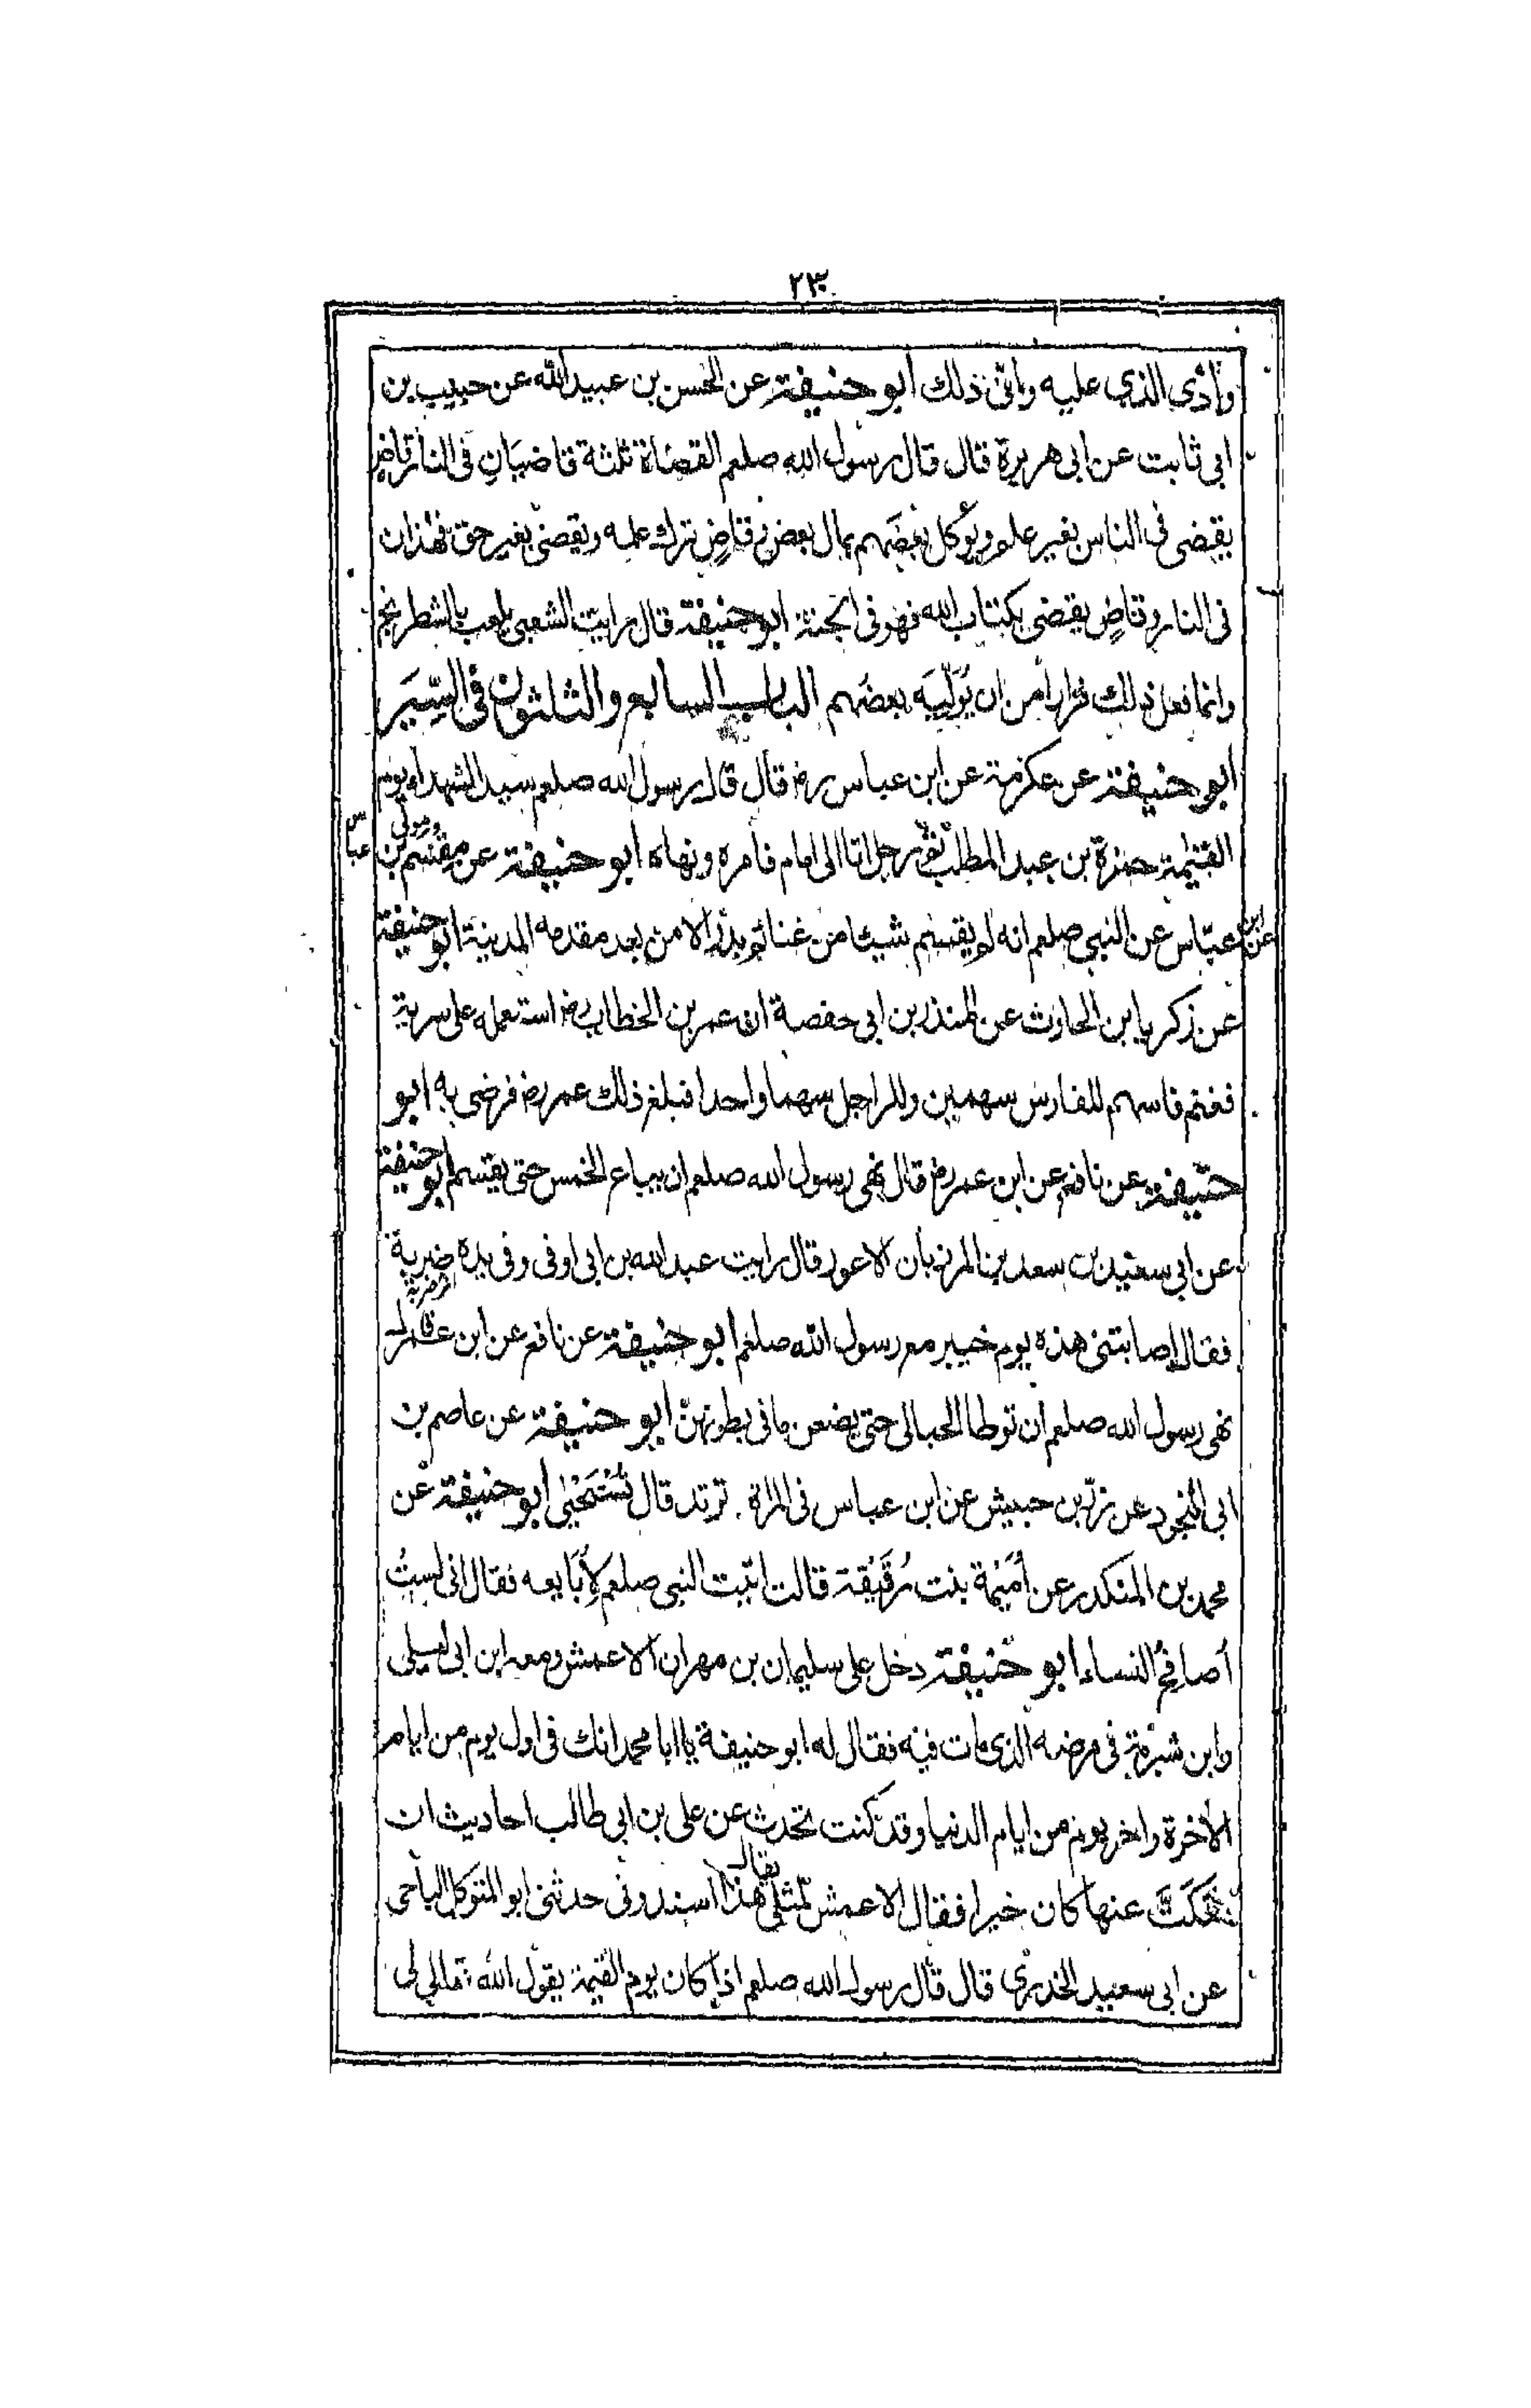 ٢٣
وادى الذي عليه واتى ذلك ابو حنيفة عن الحسن بن عبيد الله عن حبيب بن
ابى ثابت عن ابى هريرة قال قال رسول الله صلعم القضاة ثلثة قاضيان فى النار قاضٍ
يقضى فى الناس بغير علم ويوكل بعضهم بمال بعض وقاضٍ ترك علمه ويقضى بغير حق فهذان
فى النار وقاضٍ يقضى بكتاب الله فهو فى الجنة ابو حنيفة قال رايت الشعبى يلعب بالشطرنج
وانما فعل ذلك فرارا من ان يُوَلِّيَه بعضهم الباب السابع والثلثون فى السِّيَر
ابو حنيفة عن عكرمة عن ابن عباس رض قال قال رسول الله صلعم سيد الشهداء يوم
القيمة حمزة بن عبد المطلب ثم رجل اتا الى امام فامره ونهاه ابو حنيفة عن مِقْسَم بن
مولى
عباس
عن ابن
عبّاس عن النبى صلعم انه لم يقسم شيئا من غنائم بدر الا من بعد مقدمه المدينة ابو حنيفة
عن زكريا ابن الحارث عن المنذر بن ابى حفصة ان عمر بن الخطاب رض استعمله على سرية
فغنم فاسهم للفارس سهمين وللراجل سهما واحدا فبلغ ذلك عمر رض فرضى به ابو
حنيفة عن نافع عن ابن عمر رض قال نهى رسول الله صلعم ان يباع الخمس حتى يقسم ابو حنيفة
عن ابى سعيد بن سعد بن المرزبان الاعور قال رايت عبد الله بن ابى اوفى وفى يده ضربة
اثر ضربة
فقال اصابتنى هذه يوم خيبر مع رسول الله صلعم ابو حنيفة عن نافع عن ابن عمر قال
نهى رسول الله صلعم ان توطا الحبالى حتى يضعن ما فى بطونهنّ ابو حنيفة عن عاصم بن
ابى النجود عن زرّ بن حبيش عن ابن عباس فى المراة ترتد قال تُسْتَحْيٰى ابو حنيفة عن
محمد بن المنكدر عن أُمَيْمَة بنت رُقَيْقَة قالت اتيت النبى صلعم لِأُبَايعه فقال انى لستُ
أصافِحُ النساء ابو حنيفة دخل على سليمان بن مهران الاعمش ومعه ابن ابى ليلى
وابن شبرمة فى مرضه الذى مات فيه فقال له ابو حنيفة يا ابا محمد انك فى اول يوم من ايام
الآخرة واخر يوم من ايام الدنيا وقد كنت تحدث عن على بن ابى طالب احاديث ان
يقال
سَكَتَّ عنها كان خيرا فقال الاعمش لمثلى هذا اسندونى حدثنى ابو المتوكل الناجى
عن ابى سعيد الخدرى قال قال رسول الله صلعم اذا كان يوم القيمة يقول الله تعالى لى